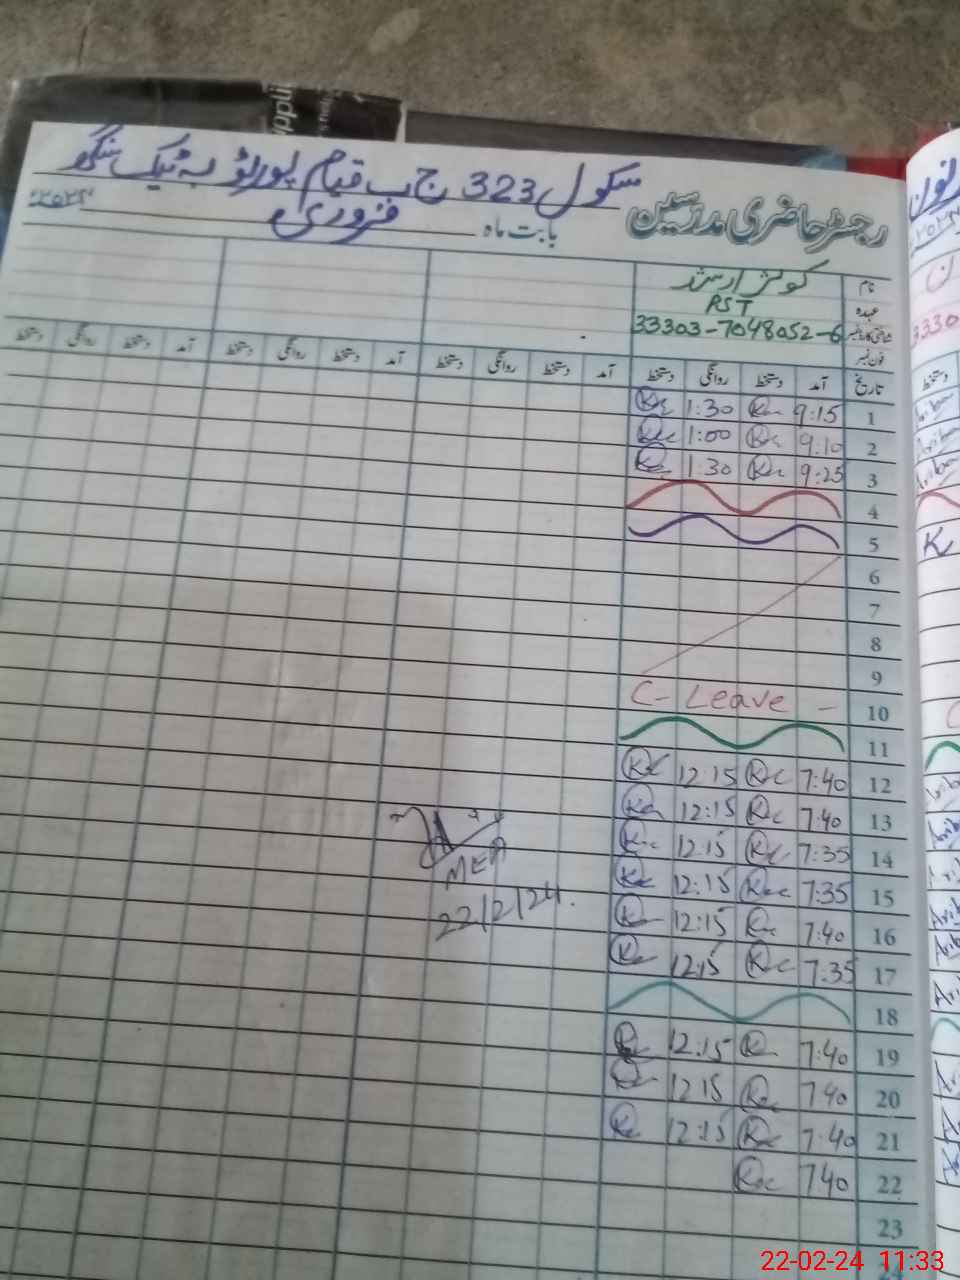 سکول 323 ج ب قیام پور ٹوبہ ٹیک سنگھ
رجسٹر حاضری مدرسین
بابت ماہ فروری ۲۰۲۴ء
نام کوثر ارشد
عہدہ PST
شناختی کارڈ نمبر 33303-7048052-6
فون نمبر
تاریخ آمد دستخط روانگی دستخط آمد دستخط روانگی دستخط آمد دستخط روانگی دستخط آمد دستخط روانگی دستخط
1 9:15 1:30
2 9:10 1:00
3 9:25 1:30
4
5
6
7
8
9
10 C-Leave -
11
12 7:40 12:15
13 7:40 12:15
14 7:35 12:15
15 7:35 12:15
16 7:40 12:15
17 7:35 12:15
18
19 7:40 12:15
20 7:40 12:15
21 7:40 12:15
22 7:40
23
24
MEA
22/2/24.
3330
K
22-02-24 11:33